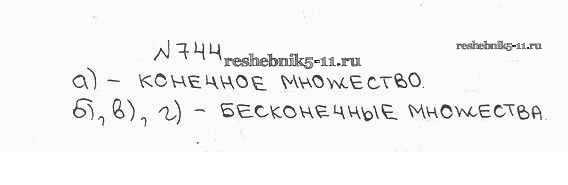 №744
reshebnik5-11.ru
reshebnik5-11.ru
а) – КОНЕЧНОЕ МНОЖЕСТВО.
б), в), г) – БЕСКОНЕЧНЫЕ МНОЖЕСТВА.